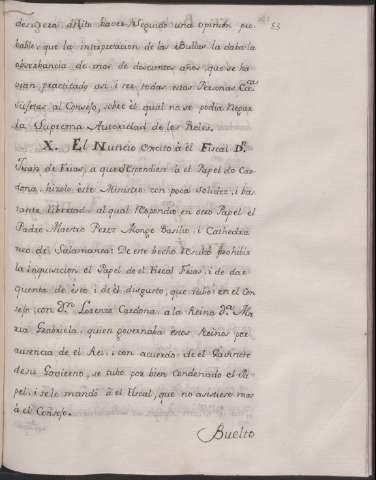 53
ber, que la interpretacion de las Bullas la daba la
observancia de mas de doscientos años, que se ha-
vian practicado assi i ser todas estas Personas
sujetas al Consejo, sobre el qual no se podia negar
la Suprema Autoridad de los Reies.
X. El Nuncio Excito à el Fiscal Dn.
Juan de Frias, a que respondiese à el Papel de Car-
dona, hizolo este Ministro con poca solidez, i bas-
tante libertad, al qual respondio en otro Papel el
Padre Maestro Perez Monge Basilio, i Cathedra-
tico de Salamanca: De este hecho resulto prohibir
la inquisicion el Papel de el Fiscal Frias, i de dar
quenta de esto, i de el disgusto, que hubo en el Con-
sejo con Dn. Lorenzo Cardona, a la Reina Da. Ma-
ria Gabriela, quien governaba estos Reinos por
ausencia de el Rei, i con acuerdo de el Gavinete
de su Govierno, se tubo por bien condenado el Pa-
pel, i se le mandò à el Fiscal, que no asistiese mas
à el Consejo.
Buelto